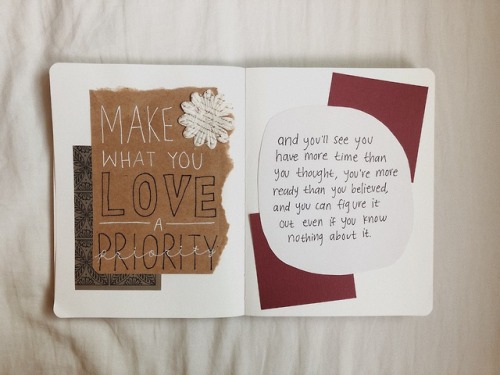 MAKE
WHAT YOU
LOVE
A
PRIORITY
priority
and you'll see you
have more time than
you thought, you're more
ready than you believed,
and you can figure it
out even if you know
nothing about it.